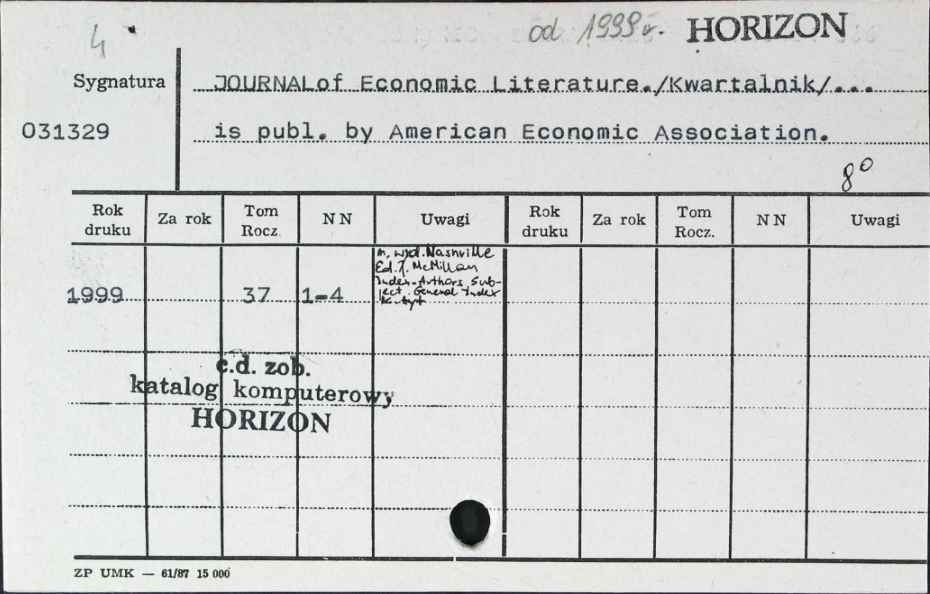 4 od 1999r. HORIZON
Sygnatura JOURNAL of Economic Literature./Kwartalnik/...
031329 is publ. by American Economic Association.
8º
Rok druku Za rok Tom Rocz. NN Uwagi Rok druku Za rok Tom Rocz. NN Uwagi
m. wyd. Nashville
Ed. J. McMillan
Index-Authors Sub-
1999 37 1-4 ject. General Index
K. tyt
c.d. zob.
katalog komputerowy
HORIZON
ZP UMK — 61/87 15 000